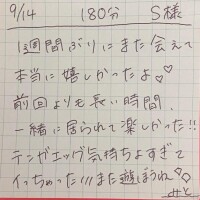 9/14 180分 S様
1週間ぶりにまた会えて
本当に嬉しかったよ♡♡
前回よりも長い時間、
一緒に居られて楽しかった!!
テンガエッグ気持ちよすぎて
イっちゃった!!!また遊ぼうね♡♡